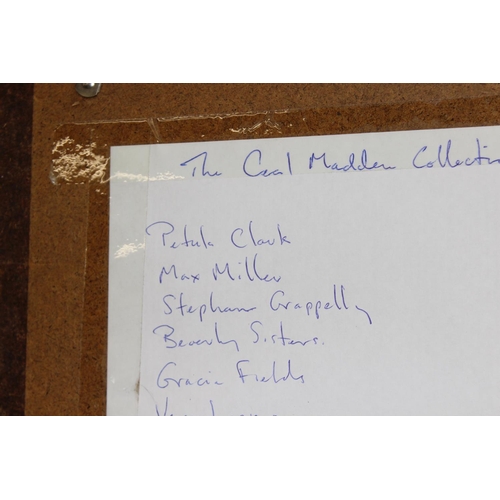 The Cecil Madden Collectio
Petula Clark
Max Miller
Stephane Grappelly
Beverly Sisters.
Gracie Fields